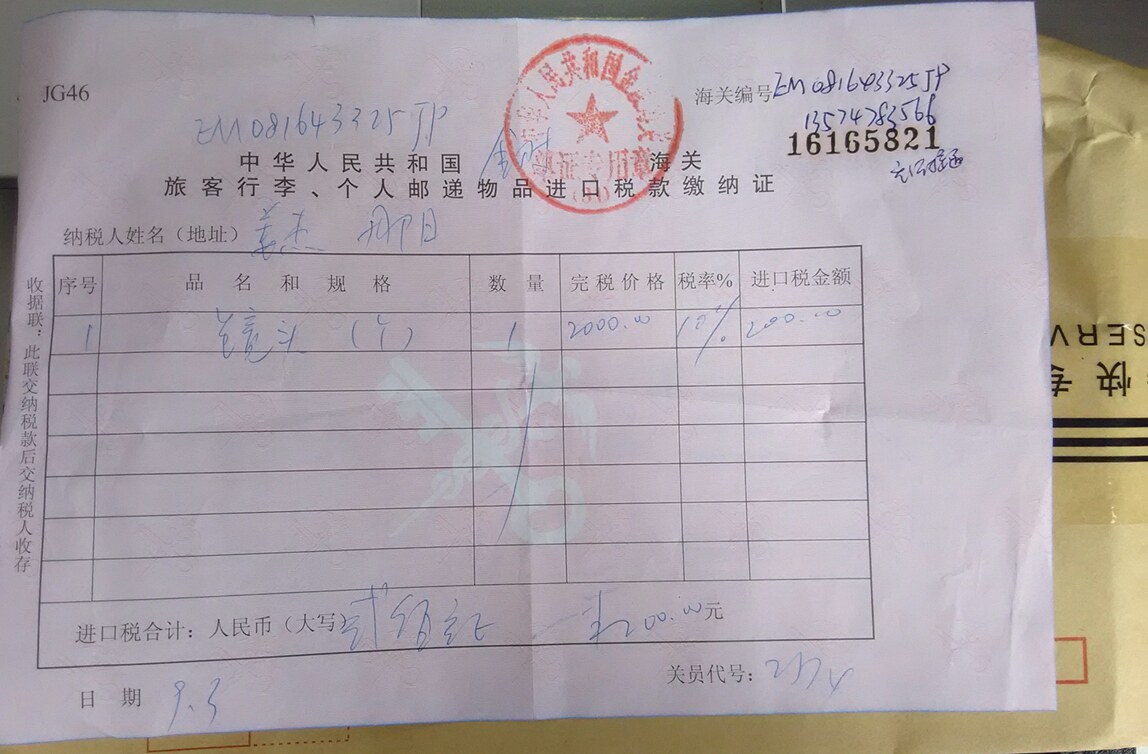 JG46
EM081643325JP
海关编号EM081643325JP
13574783566
16165821
中华人民共和国 海关
旅客行李、个人邮递物品进口税款缴纳证
纳税人姓名（地址）姜杰
序号 品名和规格 数量 完税价格 税率% 进口税金额
1 镜头（个） 1 2000.00 10% 200.00
进口税合计：人民币（大写）贰佰 200.00元
日期 9.3
关员代号：
收据联：此联交纳税款后交纳税人收存
专快
SERV